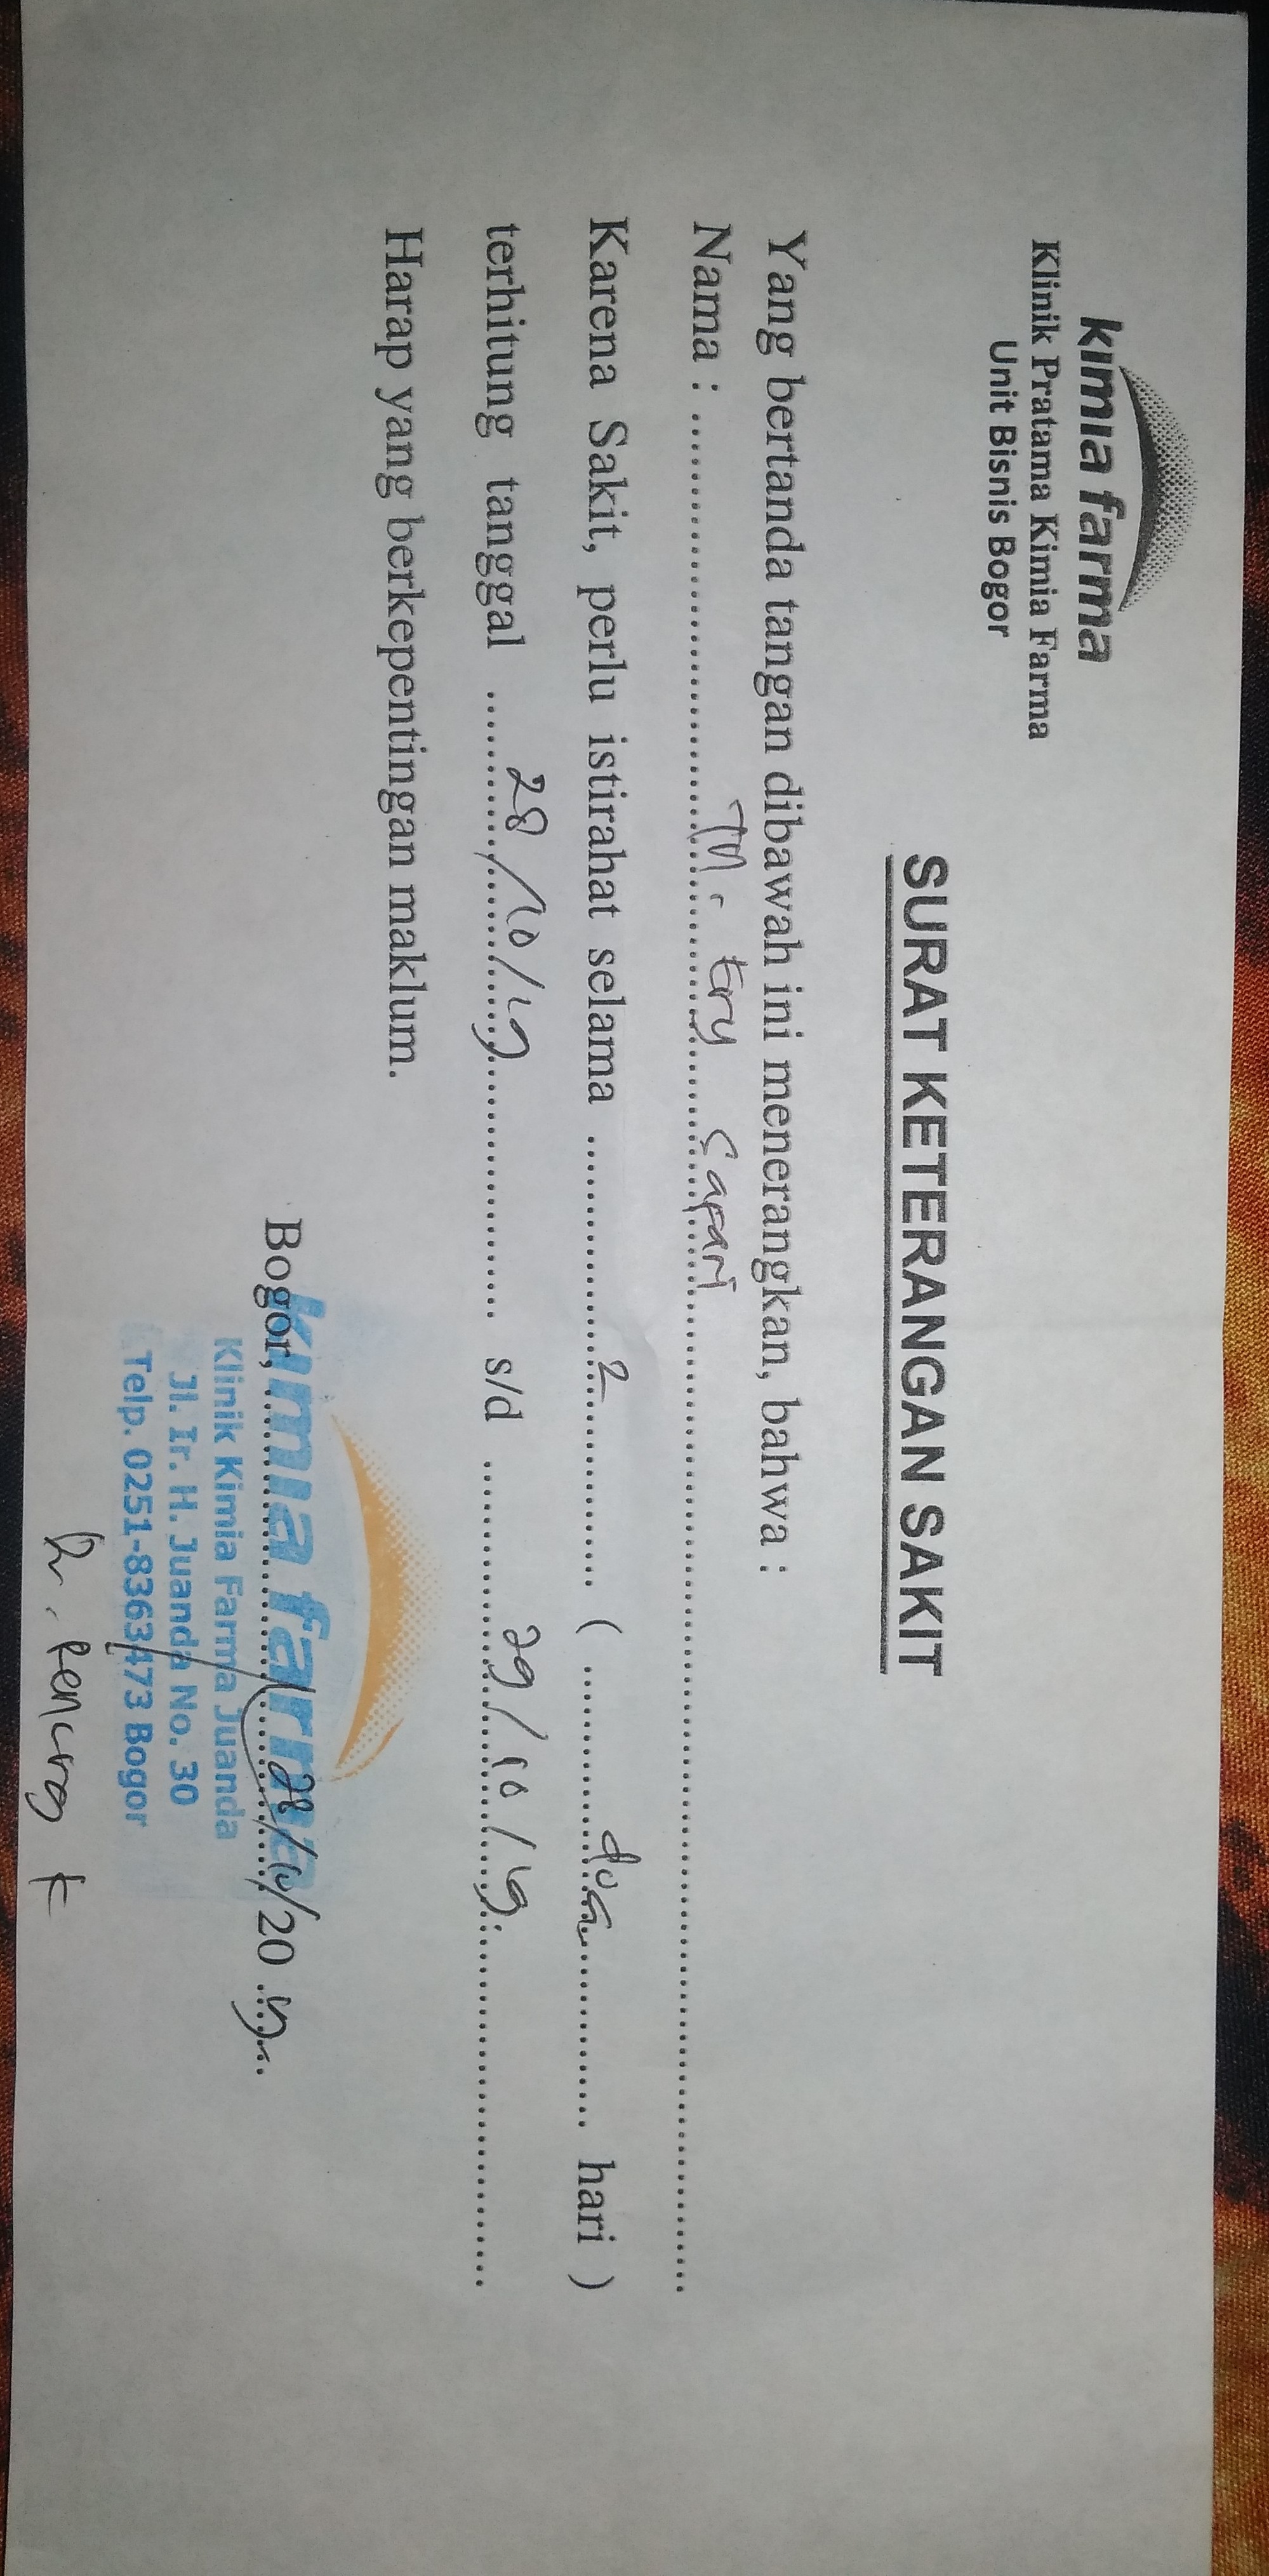 kimia farma
Klinik Pratama Kimia Farma
Unit Bisnis Bogor
SURAT KETERANGAN SAKIT
Yang bertanda tangan dibawah ini menerangkan, bahwa :
Nama : Try Safari
Karena Sakit, perlu istirahat selama 2 ( dua hari )
terhitung tanggal 28/10/19 s/d 29/10/19
Harap yang berkepentingan maklum.
Bogor, 28/10/2019
kimia farma
Klinik Kimia Farma Juanda
Jl. Ir. H. Juanda No. 30
Telp. 0251-8363473 Bogor